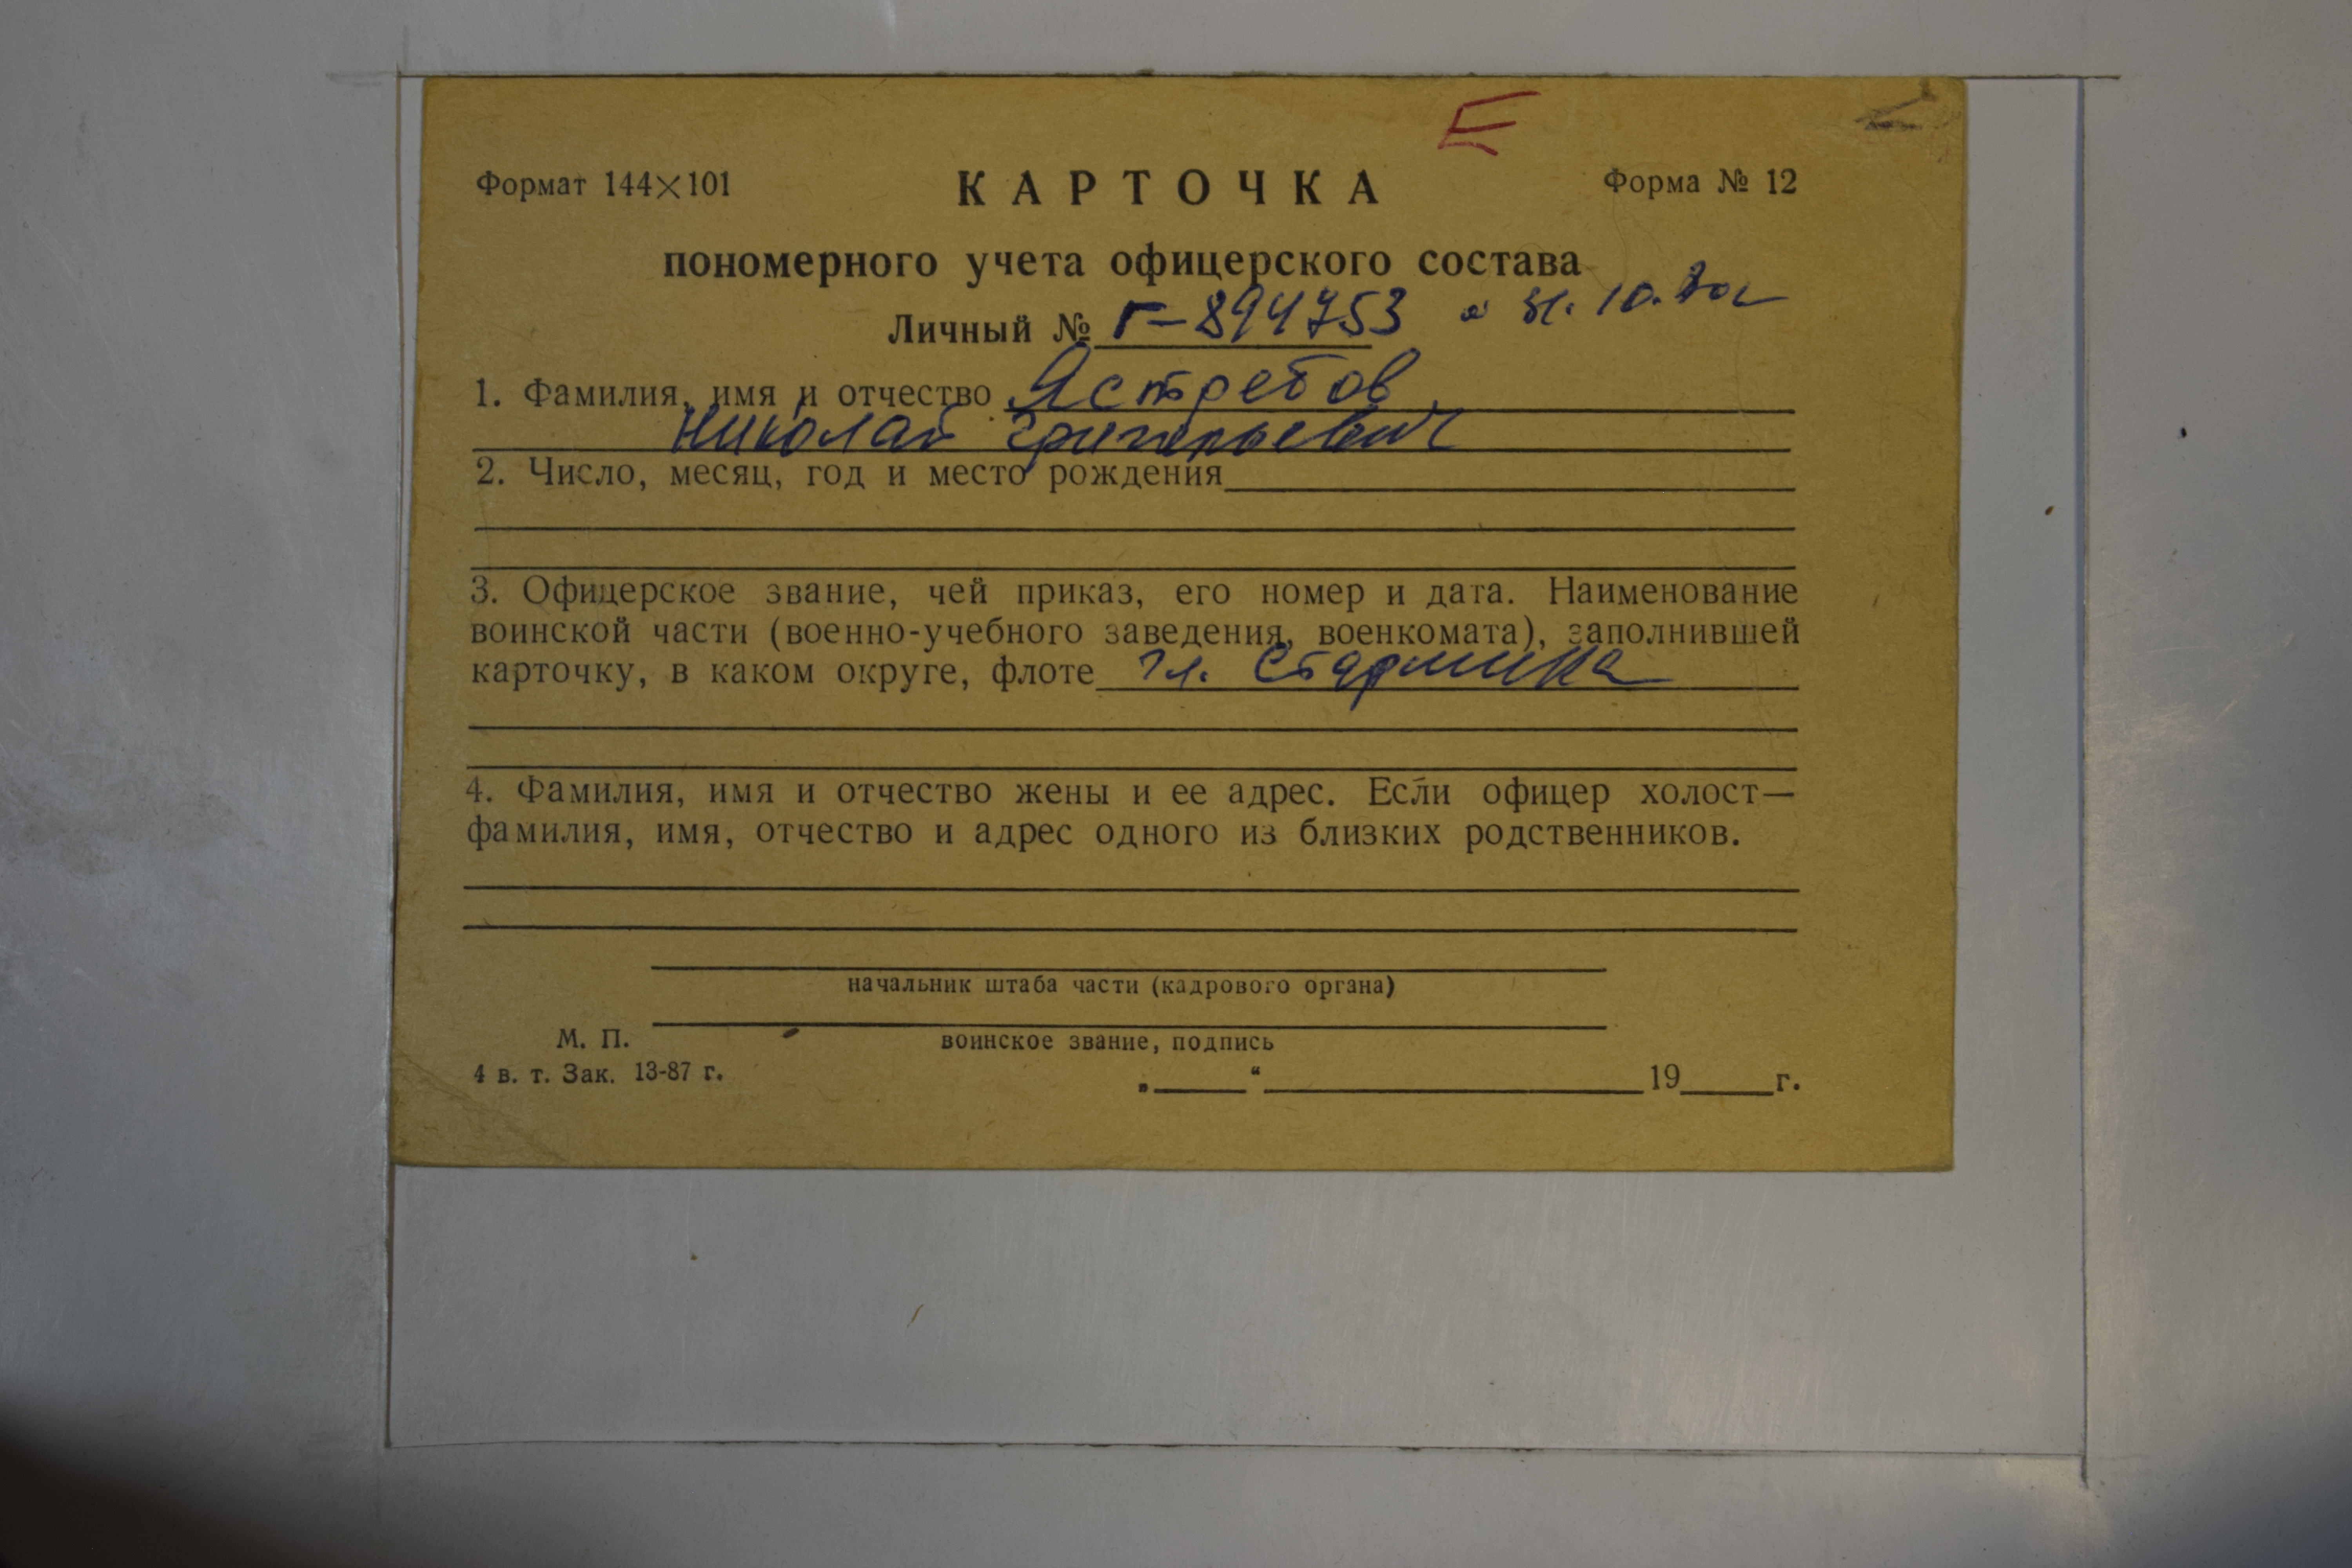 Формат 144×101
КАРТОЧКА
Форма № 12
пономерного учета офицерского состава
Личный № Г-894753
1. Фамилия, имя и отчество Ястребов
Николай Григорьевич
2. Число, месяц, год и место рождения
3. Офицерское звание, чей приказ, его номер и дата. Наименование
воинской части (военно-учебного заведения, военкомата), заполнившей
карточку, в каком округе, флоте
4. Фамилия, имя и отчество жены и ее адрес. Если офицер холост—
фамилия, имя, отчество и адрес одного из близких родственников.
начальник штаба части (кадрового органа)
М. П.
воинское звание, подпись
4 в. т. Зак. 13-87 г.
„ “ 19 г.